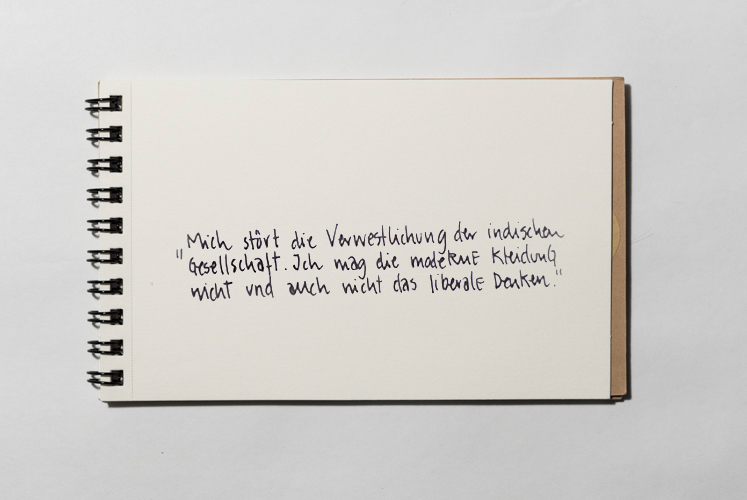 "Mich stört die Verwestlichung der indischen
Gesellschaft. Ich mag die moderne Kleidung
nicht und auch nicht das liberale Denken."